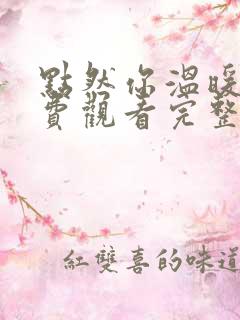 點然你溫暖
費觀看完整
紅雙喜的味道